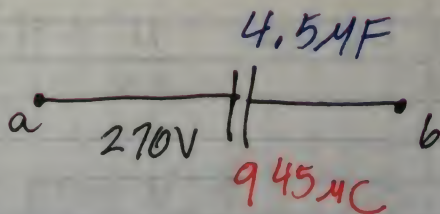 4.5μF
a b
210V
945μC